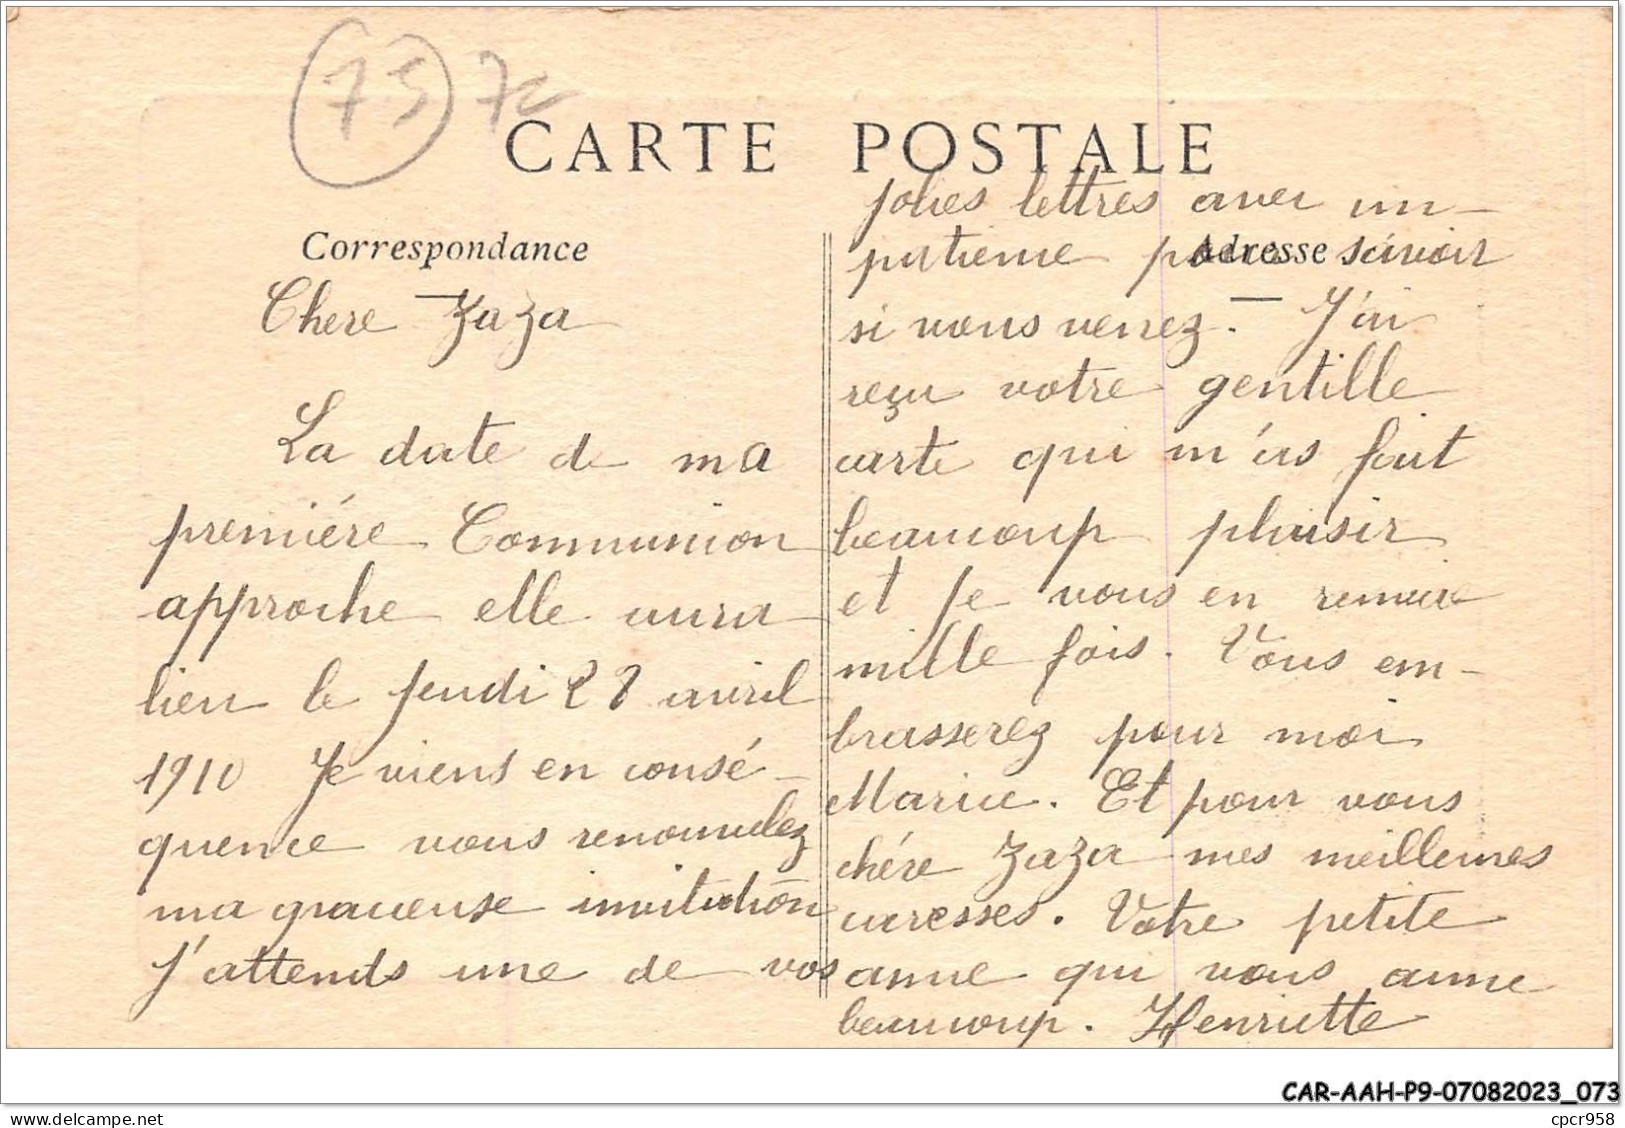 75 7c
CARTE POSTALE
Correspondance
Adresse
Chere Zaza
La date de ma
premiére Communion
approche elle aura
lieu le jeudi 28 avril
1910 Je viens en consé-
quence vous renouvelez
ma gracieuse invitation
J'attends une de vos
jolies lettres avec im-
patience pour savoir
si vous venez. J'ai
reçu votre gentille
carte qui m'as fait
beaucoup plaisir
et je vous en remercie
mille fois. Vous em-
brasserez pour moi
Marice. Et pour vous
chére Zaza mes meilleures
caresses. Votre petite
amie qui vous aime
beaucoup. Henriette
CAR-AAH-P9-07082023_073
cpcr958